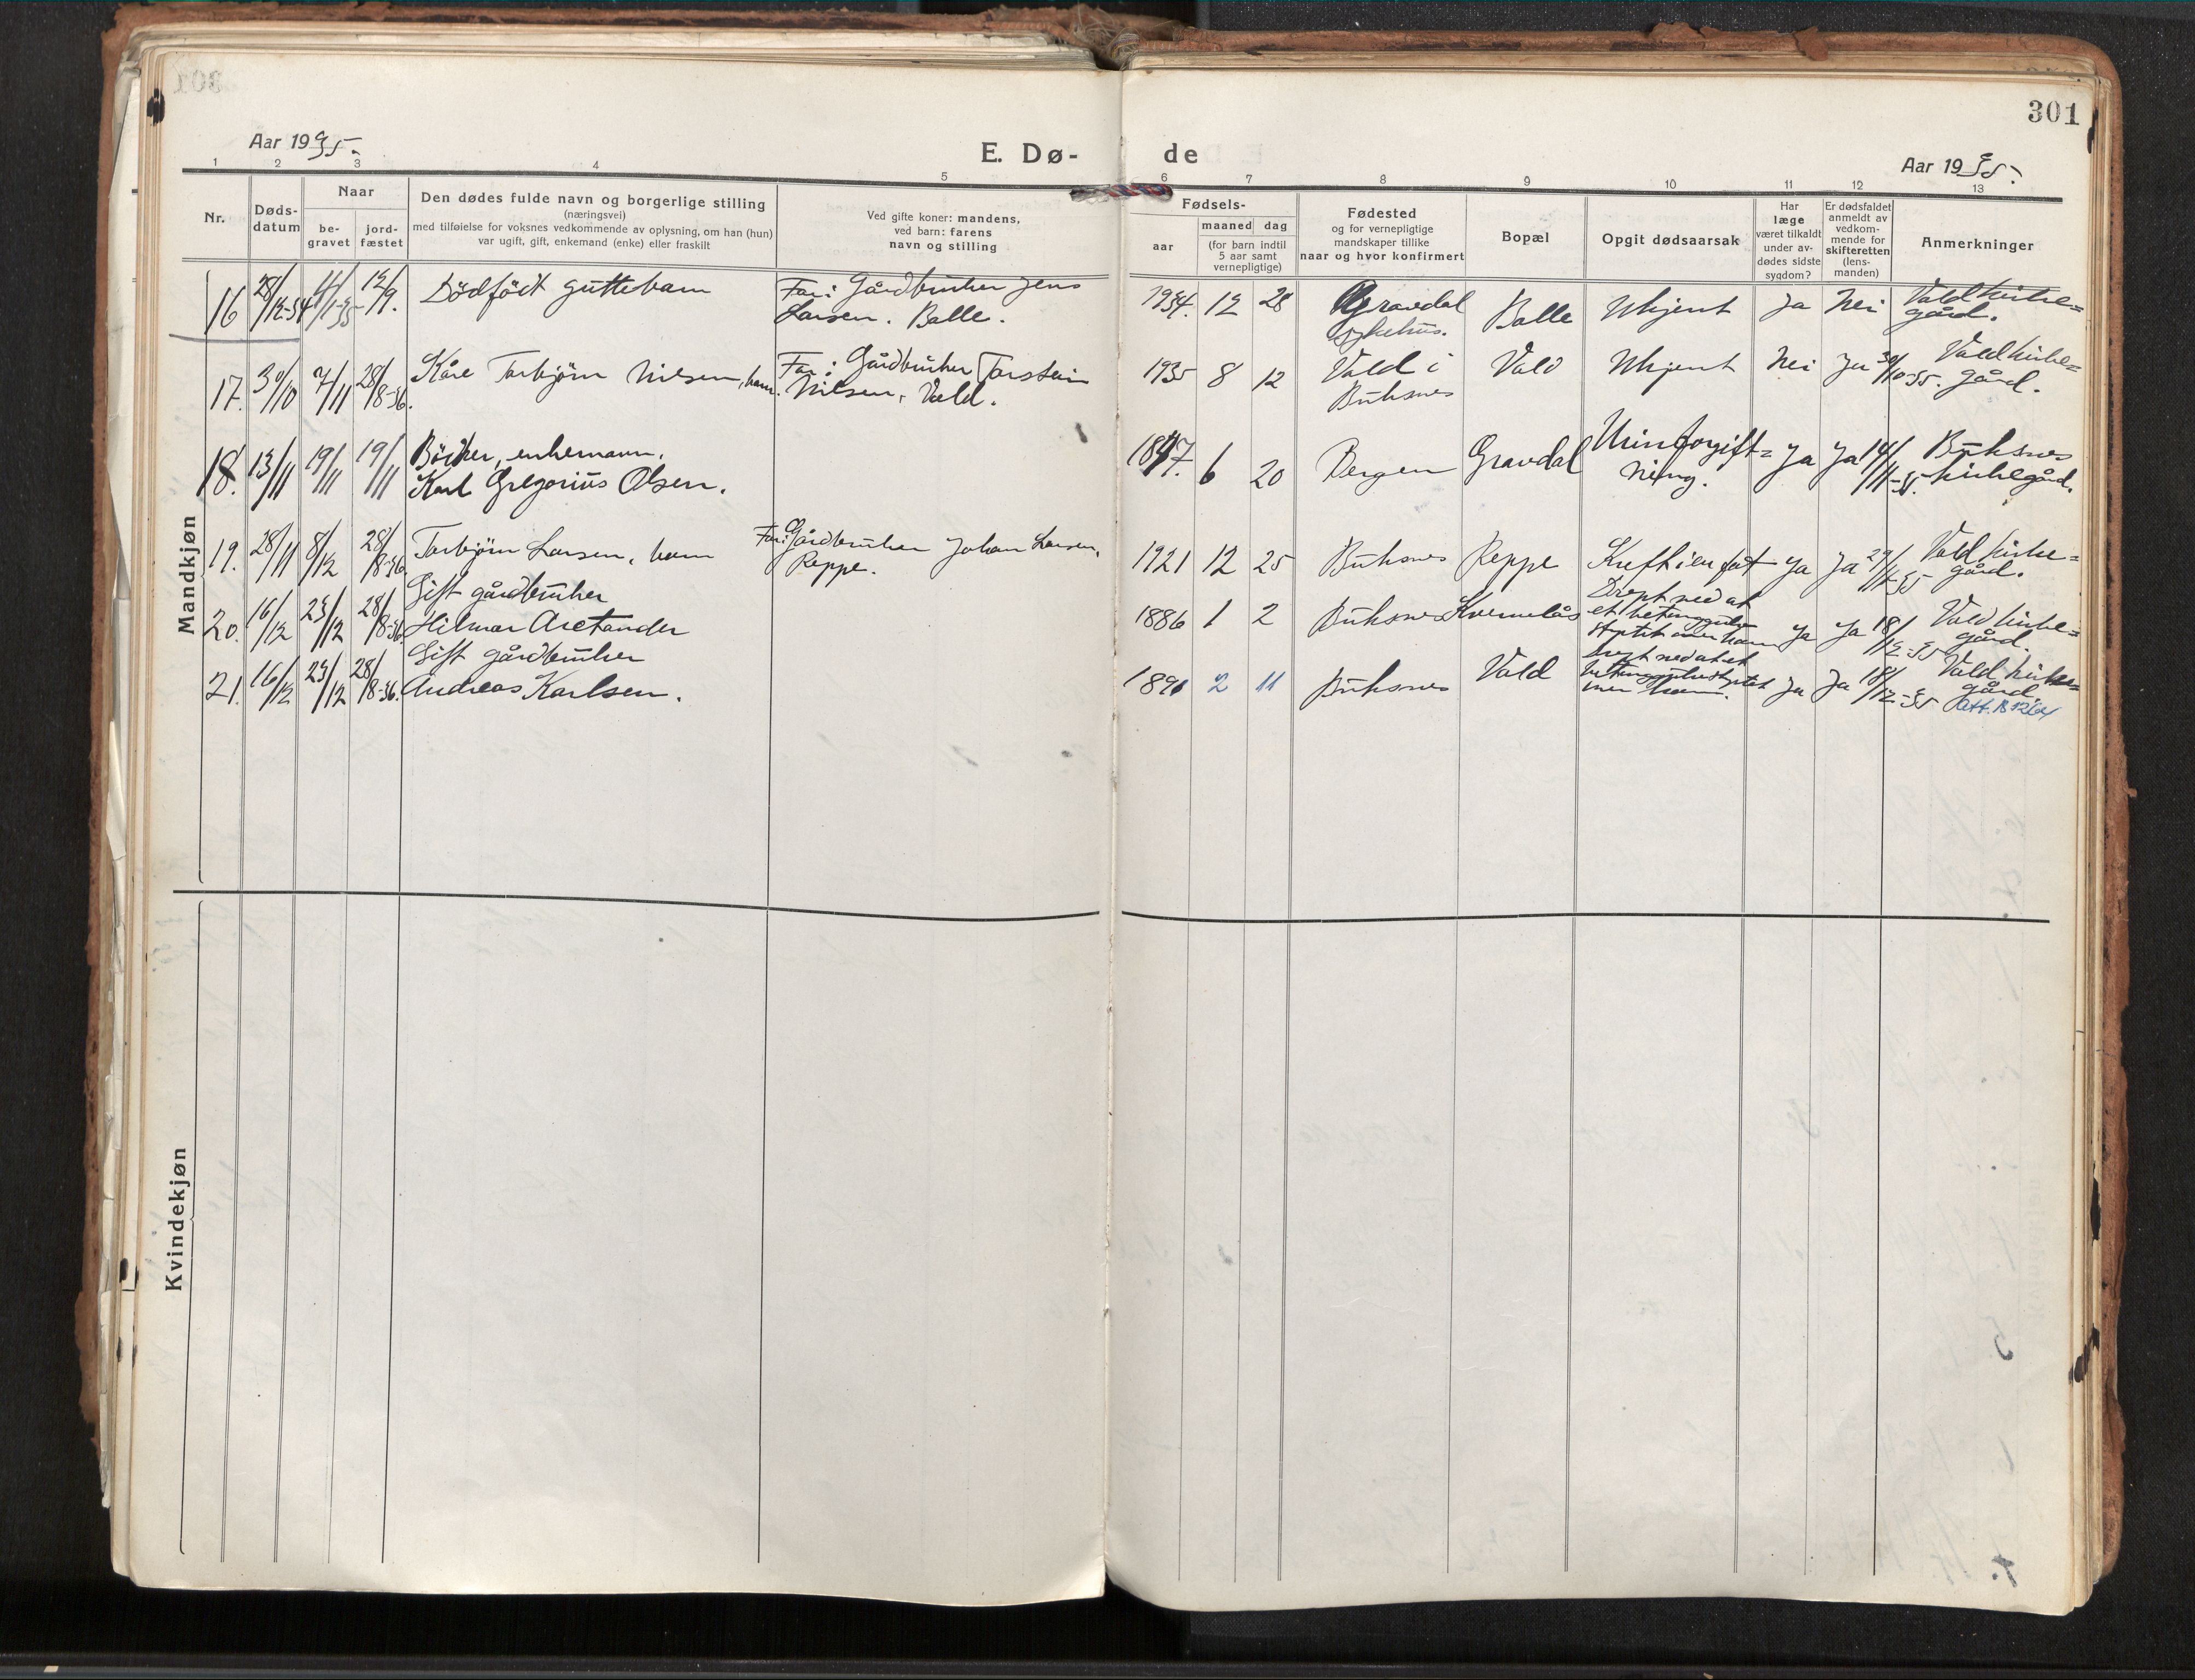 301
Aar 1935.
E. Dø-
de
Aar 1935.
1 2 3 4 5 6 7 8 9 10 11 12 13
Nr.
Døds-
datum
Naar
be-
gravet
jord-
fæstet
Den dødes fulde navn og borgerlige stilling
(næringsvei)
med tilføielse for voksnes vedkommende av oplysning, om han (hun)
var ugift, gift, enkemand (enke) eller fraskilt
Ved gifte koner: mandens,
ved barn: farens
navn og stilling
Fødsels-
aar
maaned dag
(for barn indtil
5 aar samt
vernepligtige)
Fødested
og for vernepligtige
mandskaper tillike
naar og hvor konfirmert
Bopæl
Opgit dødsaarsak
Har
læge
været tilkaldt
under av-
dødes sidste
sygdom?
Er dødsfaldet
anmeldt av
vedkom-
mende for
skifteretten
(lens-
manden)
Anmerkninger
Mandkjøn
16 28/12-34 4/1-35 12/9. Dödfödt guttebarn
Far: Gårdbruker Jens
Larsen. Balle.
1934. 12 28 Gravdal
sykehus.
Balle Ukjent Ja Nei Vold kirke=
gård.
17. 30/10 7/11 28/8-36. Kåre Torbjørn Nilsen, barn.
Far: Gårdbruker Torstein
Nilsen, Vold.
1935 8 12 Vold i
Buksnes
Vold Ukjent Nei Ja 30/10-35. Vold kirke=
gård.
18. 13/11 19/11 19/11 Böcker, enkemann.
Karl Gregorius Olsen.
1847. 6 20 Bergen Gravdal Urinforgift=
ning.
Ja Ja 14/11-35. Buksnes
kirkegård.
19. 28/11 8/12 28/8-36. Torbjørn Larsen, barn
Far: Gårdbruker Johan Larsen,
Reppe.
1921 12 25 Buksnes Reppe Kreft i en fot Ja Ja 29/11-35 Vold kirke=
gård.
20. 16/12 23/12 28/8-36 Gift gårdbruker
Hilmar Arctander
1886 1 2 Buksnes Kvernelås Drept ved at
et betonggulv
styrtet over ham
Ja Ja 18/12-35 Vold kirke=
gård.
21. 16/12 23/12 28/8-36. Gift gårdbruker
Andreas Karlsen.
1890 2 11 Buksnes Vold Drept ved at et
betonggulv styrtet
over ham.
Ja Ja 18/12-35 Vold kirke=
gård.
att. B 12/64
Kvindekjøn